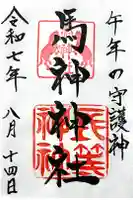 午年の守護神
馬神神社
令和七年
八月十四日